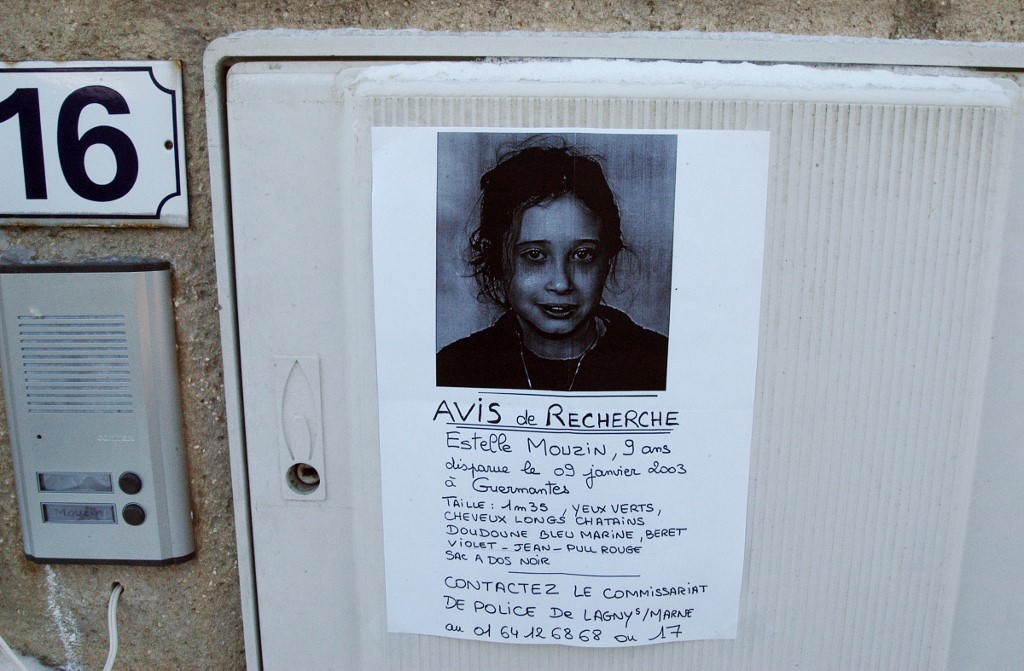 16
Mouzin
AVIS de RECHERCHE
Estelle Mouzin, 9 ans
disparue le 09 janvier 2003
à Guermantes
TAILLE : 1m35 , YEUX VERTS,
CHEVEUX LONGS CHATAINS
DOUDOUNE BLEU MARINE, BERET
VIOLET - JEAN - PULL ROUGE
SAC A DOS NOIR
CONTACTEZ LE COMMISSARIAT
DE POLICE DE LAGNY S/MARNE
au 01 64 12 68 68 ou 17